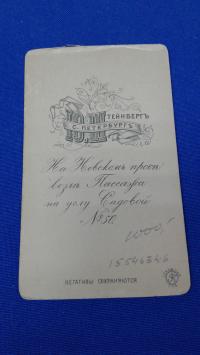 Ю. ШТЕЙНБЕРГЪ
С. ПЕТЕРБУРГЪ
На Невскомъ просп
возлѣ Пассажа
на углу Садовой
№ 50.
1000/
15546346
НЕГАТИВЫ СОХРАНЯЮТСЯ